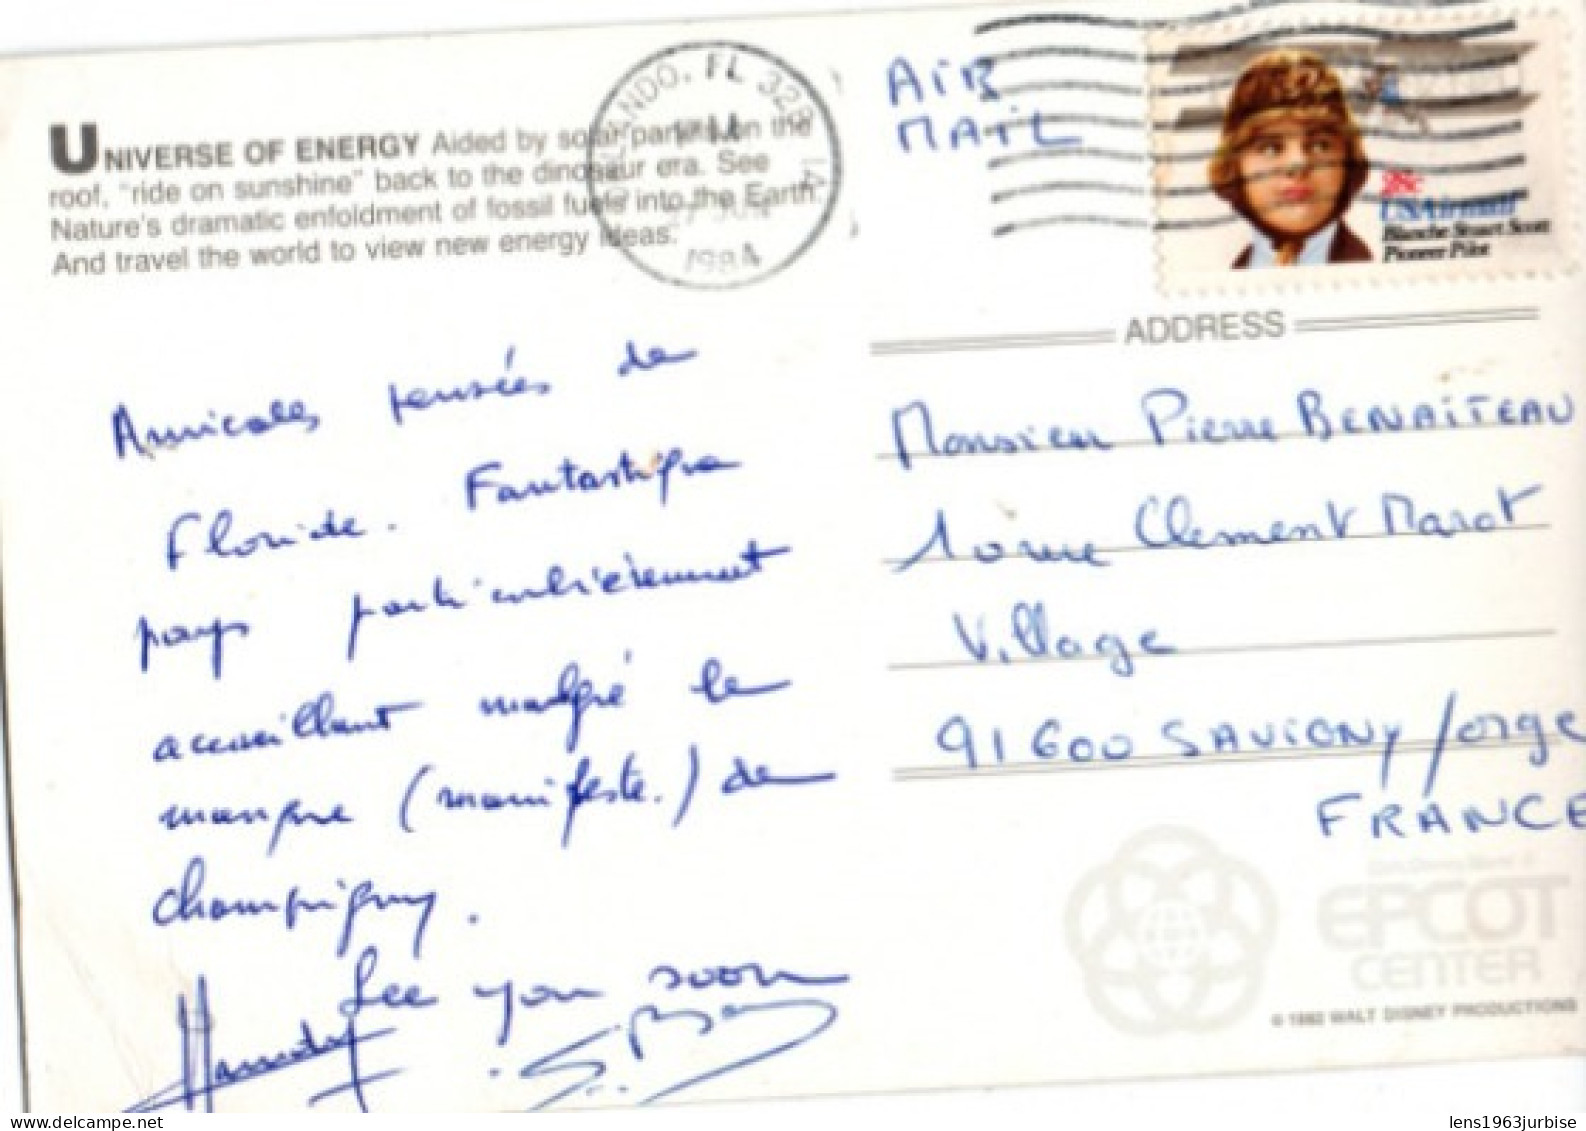 UNIVERSE OF ENERGY Aided by solar panels on the
roof, "ride on sunshine" back to the dinosaur era. See
Nature's dramatic enfoldment of fossil fuels into the Earth.
And travel the world to view new energy ideas.
ANDO, FL 328
1984
AIR
MAIL
28c
USAirmail
Blanche Stuart Scott
Pioneer Pilot
ADDRESS
Amicales pensées de
Floride. Fantastique
pays particulièrement
accueillant malgré le
manque (manifeste.) de
champigny.
See you soon
Monsieur Pierre BENAITEAU
10 rue Clement Marot
Village
91600 SAVIGNY/orge
FRANCE
EPCOT
CENTER
© 1982 WALT DISNEY PRODUCTIONS
delcampe.net
lens1963jurbise